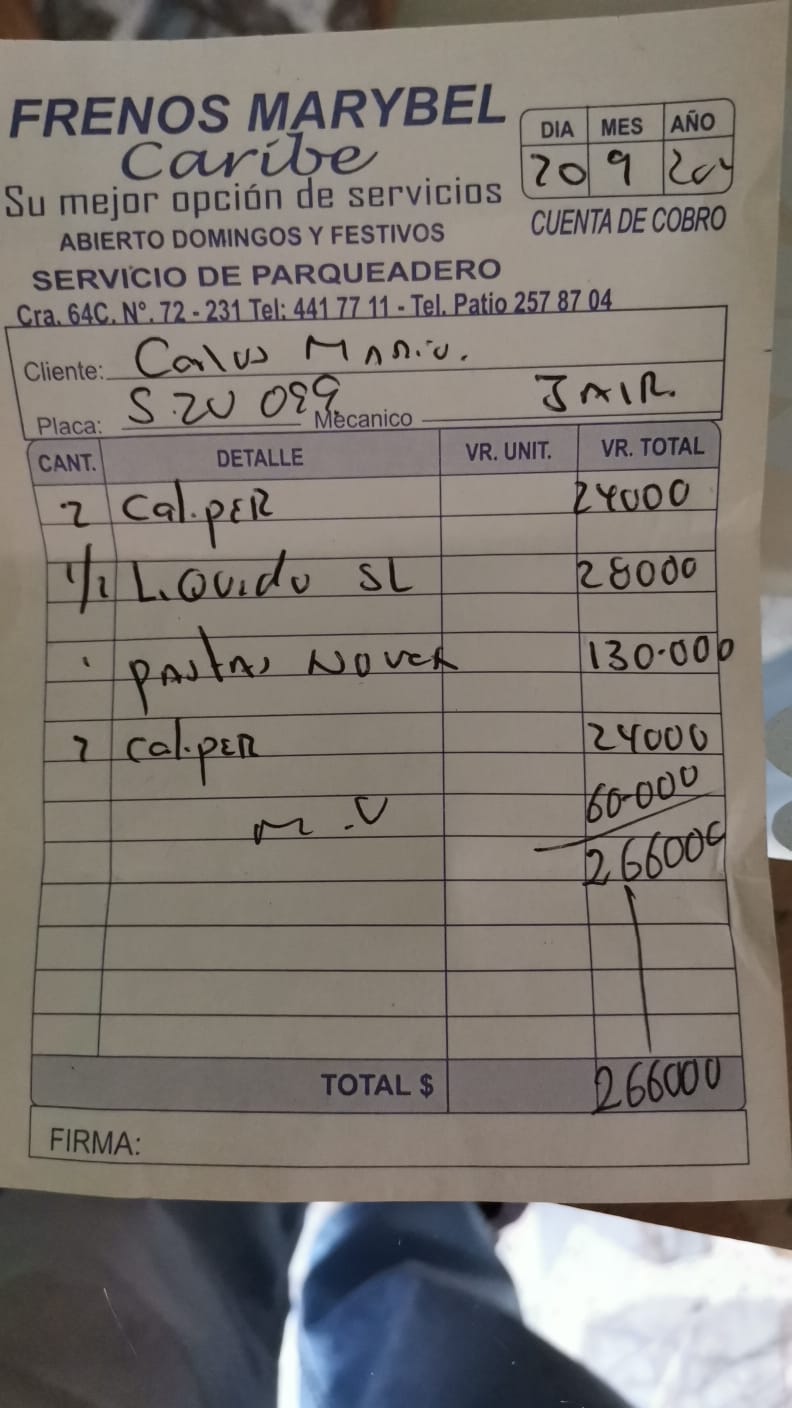 FRENOS MARYBEL
Caribe
Su mejor opción de servicios
ABIERTO DOMINGOS Y FESTIVOS
SERVICIO DE PARQUEADERO
Cra. 64C. N°. 72 - 231 Tel: 441 77 11 - Tel. Patio 257 87 04
DIA MES AÑO
20 9
CUENTA DE COBRO
Cliente: Carlos Mario.
Placa: 099 Mecanico JAIR.
CANT. DETALLE VR. UNIT. VR. TOTAL
2 Cal.PER 24000
1/2 LiQuido SL 28000
PASTAS 130.000
2 Cal.PER 24000
M.O 60.000
266000
TOTAL $ 266000
FIRMA: